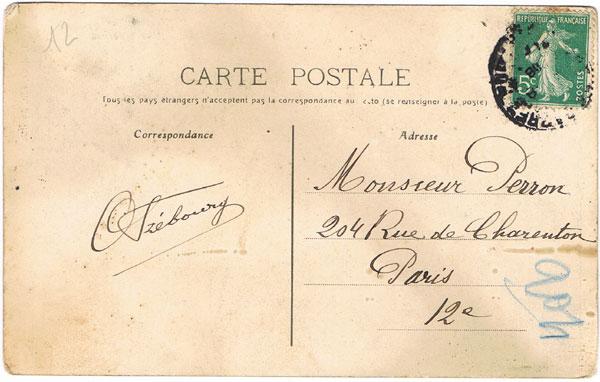 12
REPUBLIQUE FRANÇAISE
5c
POSTES
CARTE POSTALE
Tous les pays étrangers n'acceptent pas la correspondance au recto (se renseigner à la poste)
Correspondance
Adresse
Trébourg
Monsieur Perron
204 Rue de Charenton
Paris
12e
204